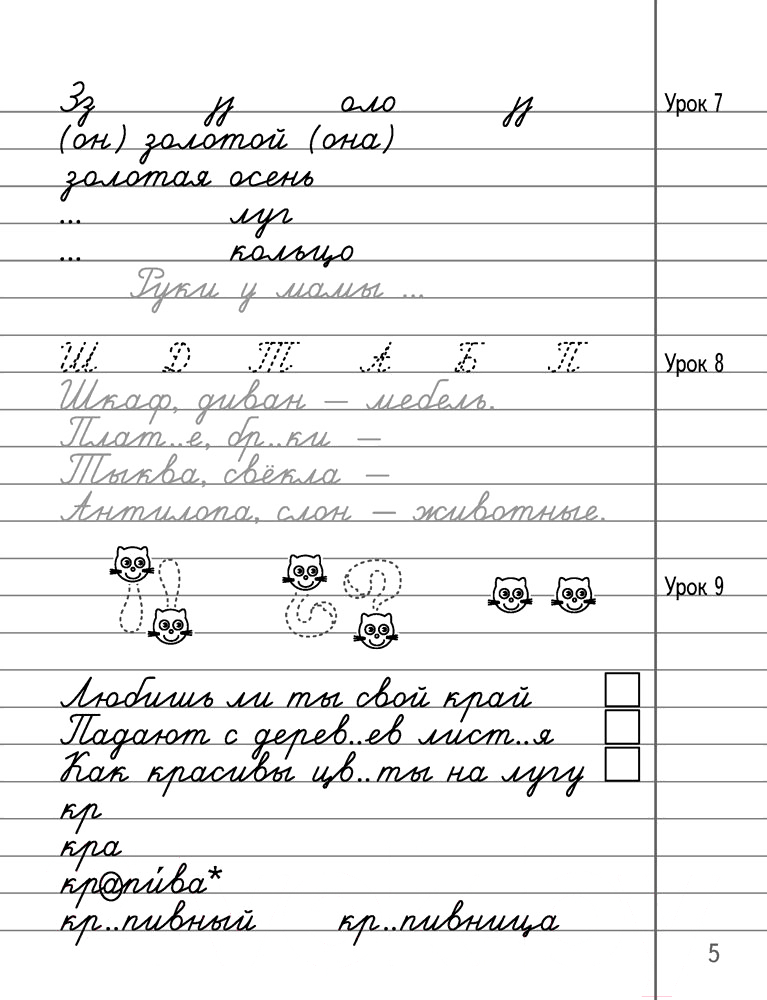 Зз у оло у Урок 7
(он) золотой (она)
золотая осень
... луг
... кольцо
Руки у мамы ...
Ш Д Т А Б П Урок 8
Шкаф, диван – мебель.
Плат..е, бр..ки –
Тыква, свёкла –
Антилопа, слон – животные.
Урок 9
Любишь ли ты свой край
Падают с дерев..ев лист..я
Как красивы цв..ты на лугу
кр
кра
крапи́ва*
кр..пивный кр..пивница
5